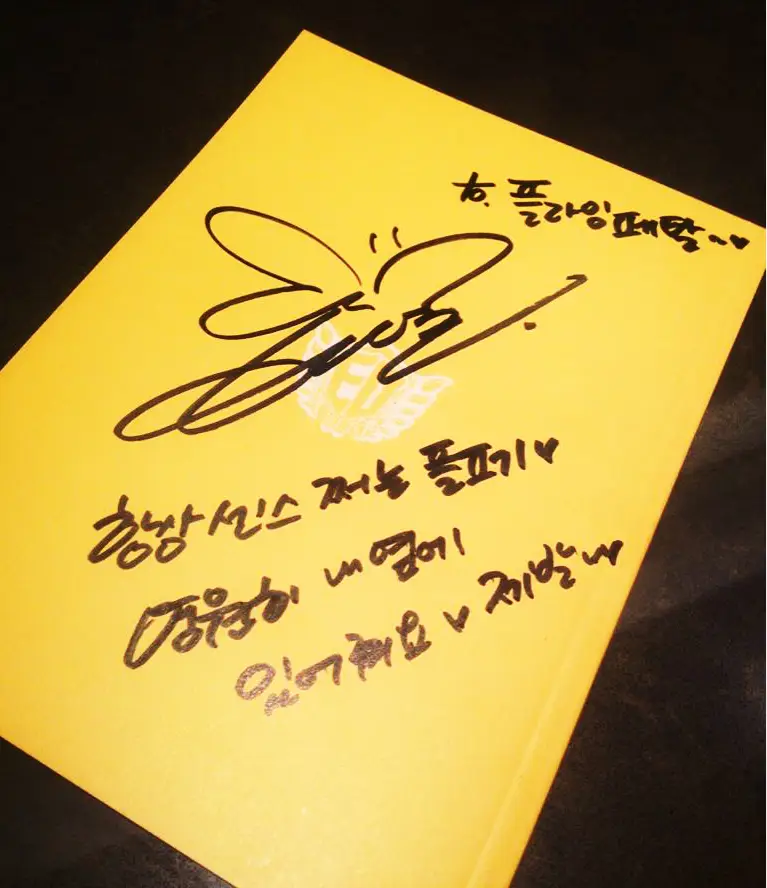 to. 플라잉페탈~♥
항상 센스 쩌는 플페기♥
영원히 내 옆에
있어줘요♥ 제발~